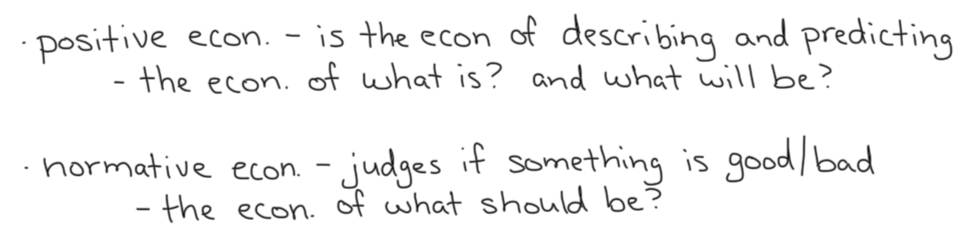 · positive econ. - is the econ of describing and predicting
- the econ. of what is? and what will be?
· normative econ. - judges if something is good/bad
- the econ. of what should be?